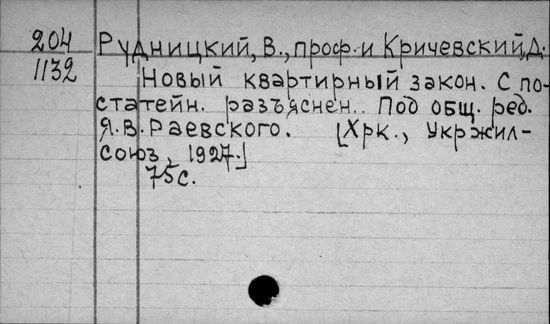 204 Рудницкий, В., проф. и Кричевский, Д.
1132 Новый квартирный закон. С по-
статейн. разъяснен.. Под общ. ред.
Я.В. Раевского. [Хрк., Укржил-
союз, 1927.]
75с.